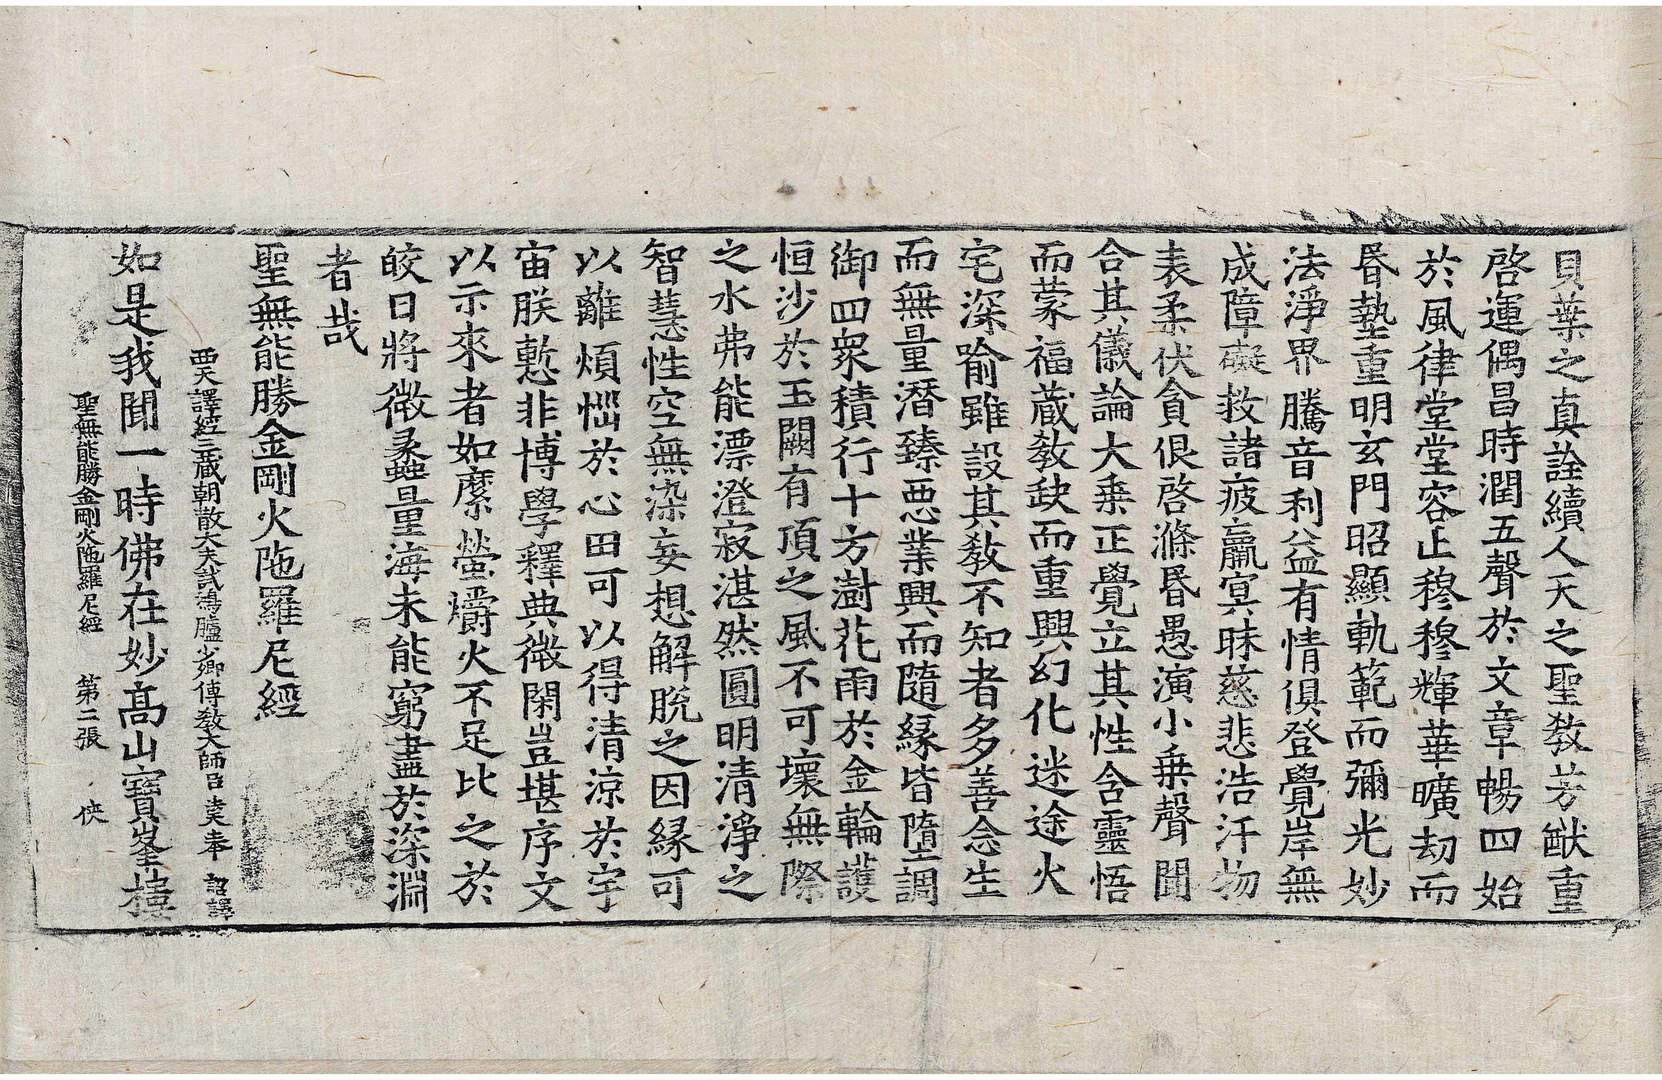 貝葉之真詮續人天之聖教芳猷重
啓運偶昌時潤五聲於文章暢四始
於風律堂堂容止穆穆輝華曠劫而
昏墊重明玄門昭顯軌範而彌光妙
法淨界騰音利益有情俱登覺岸無
成障礙救諸疲羸冥昧慈悲浩汗物
表柔伏貪佷啓滌昏愚演小乗聲聞
合其儀論大乗正覺立其性含靈悟
而蒙福蔵教缺而重興幻化迷途火
宅深喻雖設其教不知者多善念生
而無量潛臻惡業興而隨緣皆墮調
御四衆積行十方澍花雨於金輪護
恒沙於玉闕有頂之風不可壞無際
之水弗能漂澄寂湛然圓明清淨之
智慧性空無染妄想解脫之因緣可
以離煩惱於心田可以得清涼於宇
宙朕慙非博學釋典微閑豈堪序文
以示來者如縻螢爝火不足比之於
皎日將微蠡量海未能窮盡於深淵
者哉
聖無能勝金剛火陁羅尼經
西天譯經三蔵朝散大夫試鴻臚少卿傳教大師臣 奉 詔譯
如是我聞一時佛在妙高山寶峯樓
聖無能勝金剛火陁羅尼經 第二張 俠